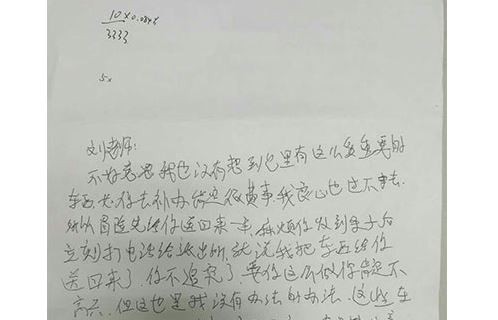 10×0.084%
3333
5x
刘老师:
不好意思我也没有想到包里有这么多重要的
东西 你去补办肯定很费事,我良心也过不去,
所以冒险先给你送回来一半,麻烦你收到东西后
立刻打电话给派出所,就说我把东西给你
送回来了,你不追究了,要你这么做你肯定不
高兴,但这也是我没有办法的办法,这些在